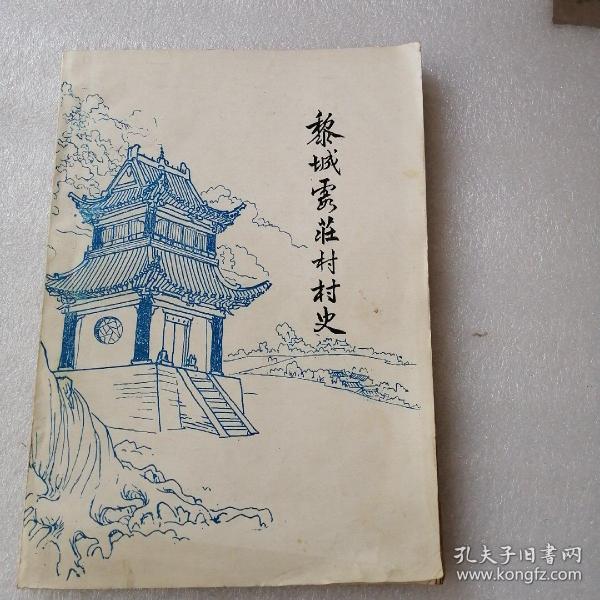 黎城霞莊村村史
孔夫子旧书网
www.kongfz.com